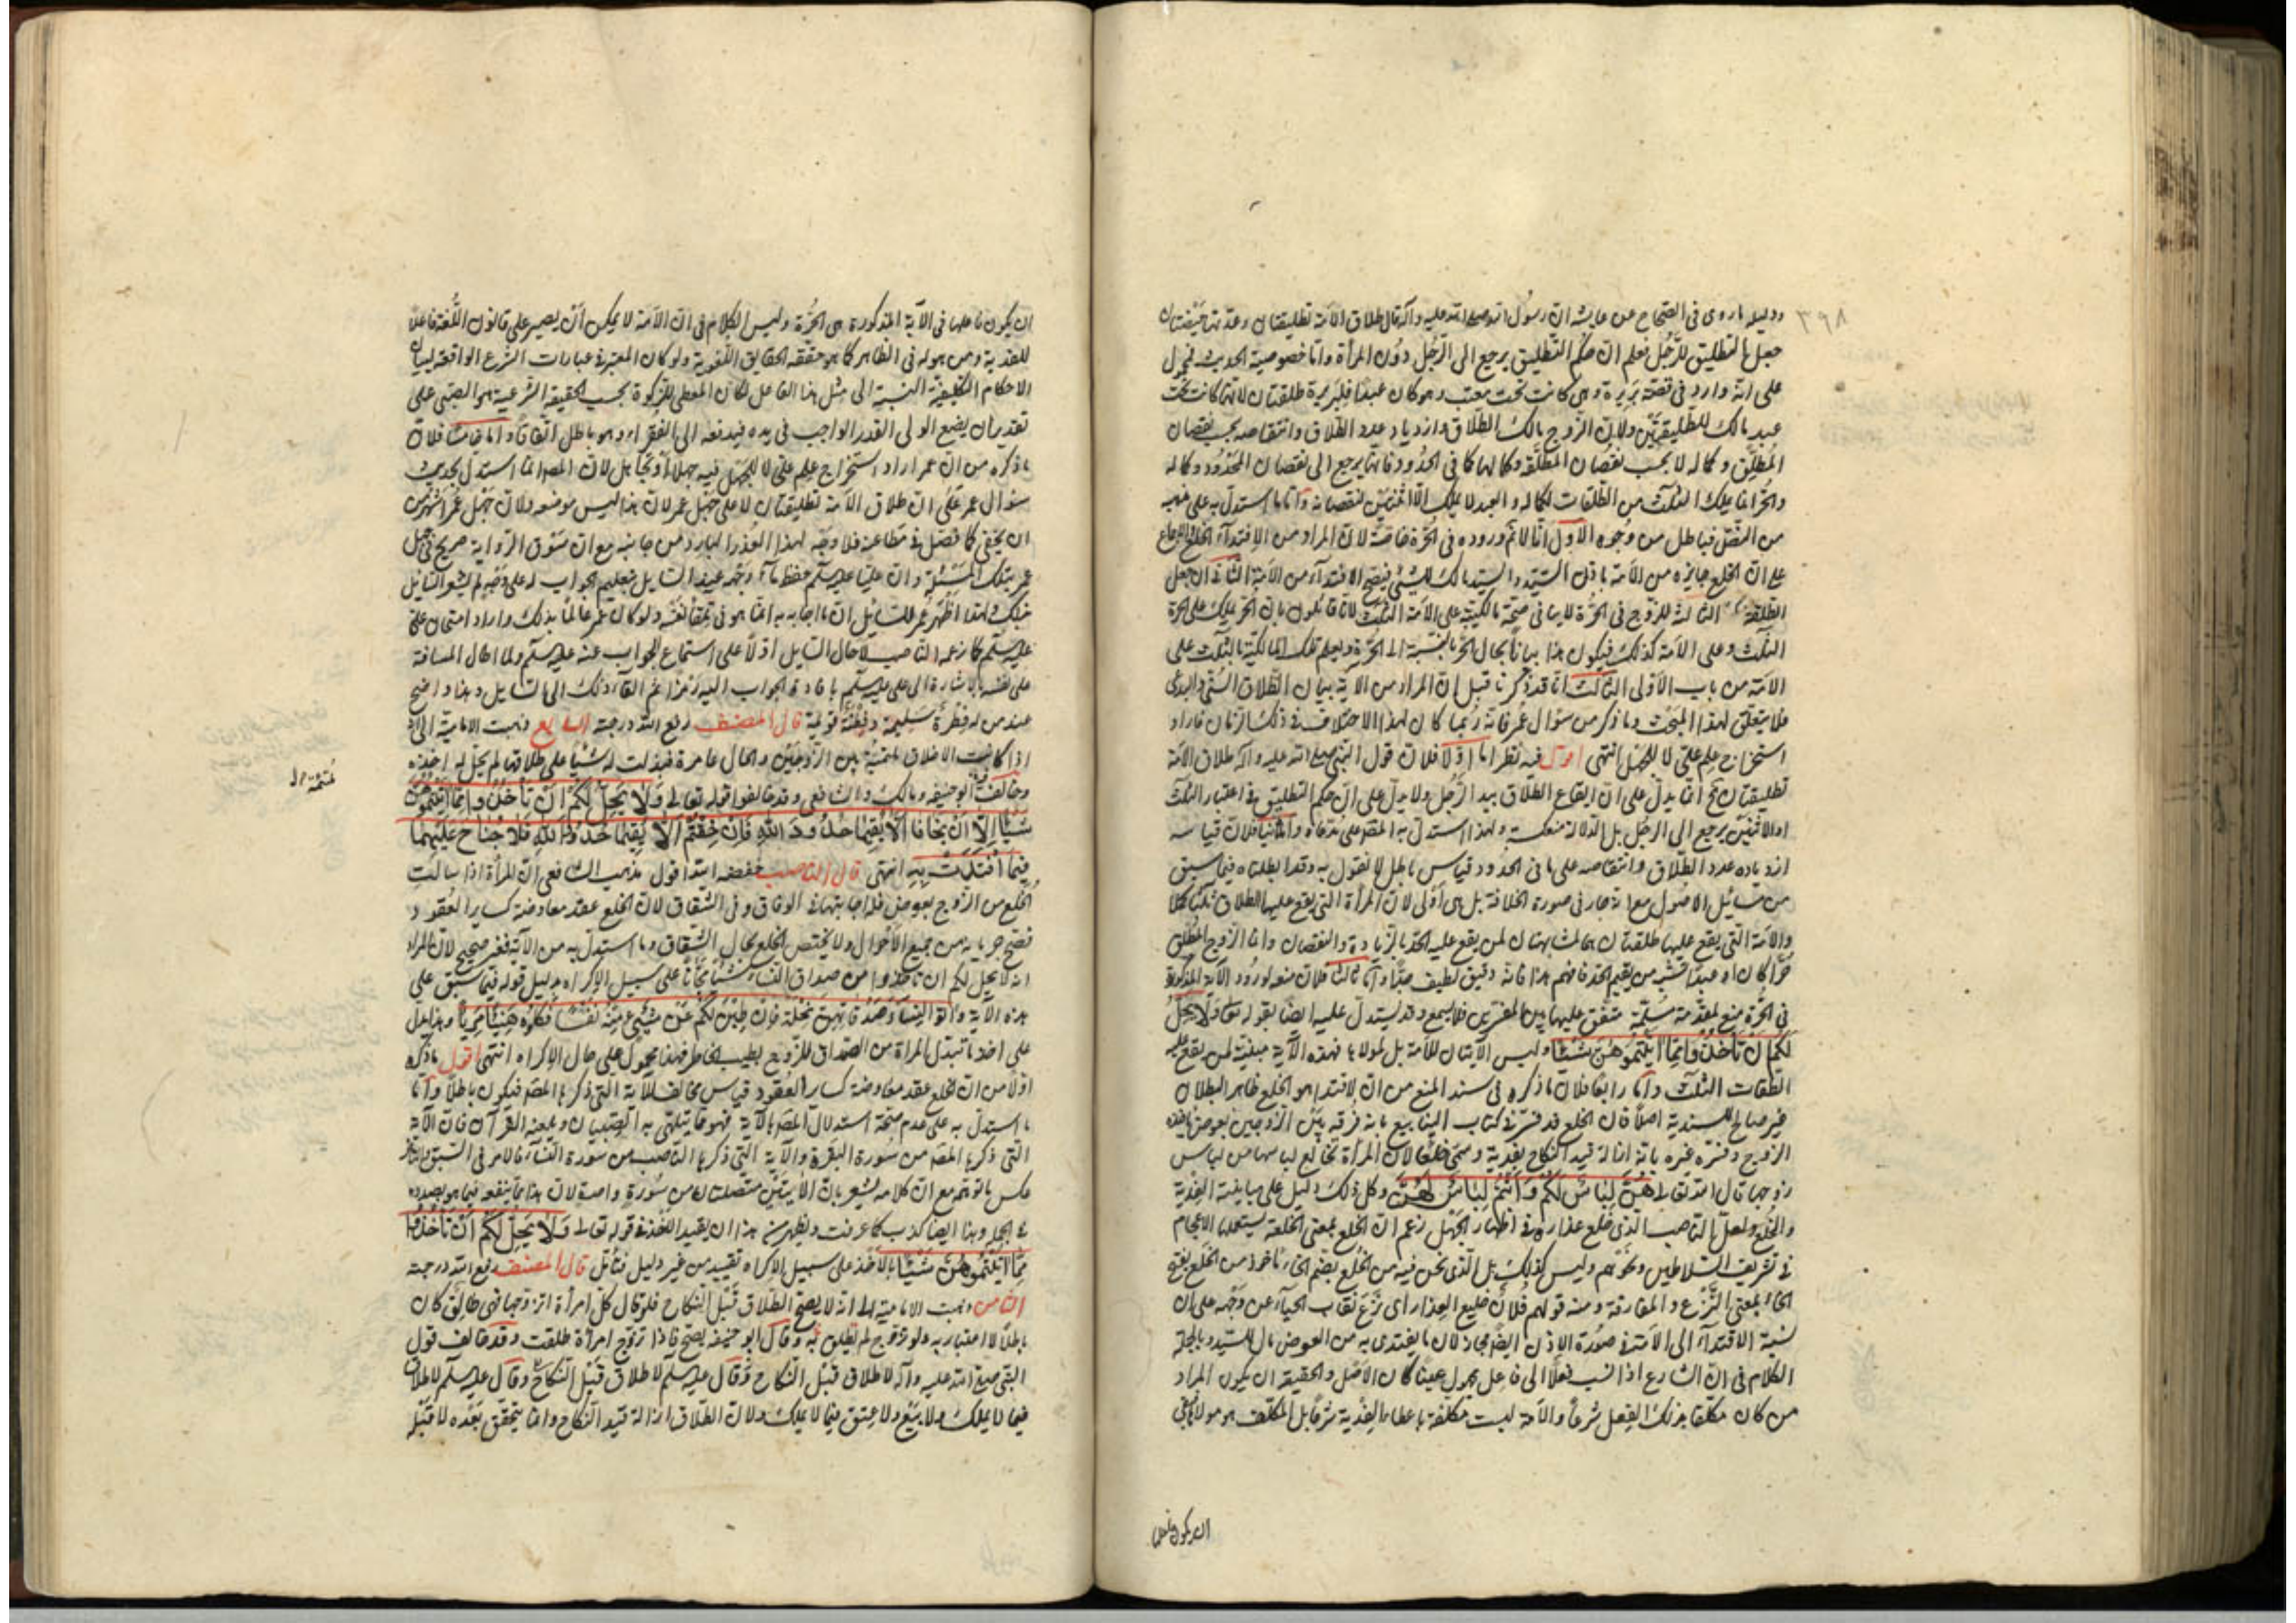 ٣٩٨
ودليله ما روى في الصحاح عن عايشه ان رسول الله صلى الله عليه وآله قال طلاق الامة تطليقتان وعدتها حيضتان
جعل التطليق للرجل فعلم ان حكم التطليق يرجع الى الرجل دون المرأة واما خصوصية الحديث فمحمول
على انه وارد في قصة بريرة وهى كانت تحت مغيث وهو كان عبدا فلبريرة طلقتان لانها كانت تحت
عبد مالك للتطليقتين ولان الزوج مالك الطلاق وازدياد عدد الطلاق وانتقاصه بحسب نقصان
المطلق وكماله لا بحسب نقصان المطلقة وكمالها كما في الحدود فانها يرجع الى نقصان المحدود وكماله
والحر انما يملك الثلث من الطلقات لكماله والعبد لا يملك الا اثنتين لنقصانه واما ما استدل به على مذهبه
من النص فباطل من وجوه الاول انا لا نم وروده في الحرة خاصة لان المراد من الافتداء الخلع والاجماع
على ان الخلع جايز من الامة باذن السيد والسيد مالك للشئ فيصح الافتداء من الامة الثاني ان جعل
الطلقة الثالثة للزوج في الحرة لا ينافي صحة مالكيته على الامة الثلث لانا قايلون بان الحر يملك على الحرة
الثلث وعلى الامة كذلك فيكون هذا بيانا بحال الحر بالنسبة الى الحرة ويعلم تلك المالكية بالثلث على
الامة من باب الاولى الثالث انا قد ذكرنا قبل ان المراد من الاية بيان الطلاق السنى والبدعى
فلا يتعلق لهذا المبحث وما ذكر من سؤال عمر فانه ربما كان لهذا الاختلاف في ذلك الزمان فاراد
استخراج علم على لا للجهل انتهى اقول فيه نظر اما اولا فلان قول النبي صلى الله عليه وآله طلاق الامة
تطليقتان انما يدل على ان ايقاع الطلاق بيد الرجل ولا يدل على ان حكم التطليق في اعتبار الثلث
او الاثنين يرجع الى الرجل بل الدلالة منعكسة ولهذا استدل به المص على مدعاه واما ثانيا فلان قياسه
ازدياده عدد الطلاق وانتقاصه على ما في الحدود قياس باطل لا نقول به وقد ابطلناه فيما سبق
من مسائل الاصول مع انه جار في صورة الخلافة بل هى اولى لان المرأة التى يقع عليها الطلاق ثلثا كملا
والامة التى يقع عليها طلقتان هما المشابهتان لمن يقع عليه الحد بالزيادة والنقصان واما الزوج المطلق
حرا كان او عبدا فشبه من يقيم الحد فافهم هذا فانه دقيق لطيف جدا واما ثالثا فلان منعه لورود الآية المذكورة
في الحرة منع لمقدمة مسلمة متفق عليها بين المفسرين فلا يسمع وقد يستدل عليه ايضا بقوله تعالى ولا يحل
لكم ان تأخذوا مما آتيتموهن شيئا وليس الايتان للامة بل لمولاها فهذه الآية مبينة لمن يقع عليه
الطلقات الثلث واما رابعا فلان ما ذكره في سند المنع من ان الافتداء هو الخلع ظاهر البطلان
غير صالح للسندية اصلا فان الخلع قد فسر في كتاب الينابيع بانه فرقة بين الزوجين بعوض ياخذه
الزوج وفسره غيره بانه ازالة قيد النكاح بفدية وسمى خلعا لان المرأة تخالع لباسها من لباس
زوجها قال الله تعالى هن لباس لكم وانتم لباس لهن وكل ذلك دليل على مباينة الفدية
والخلع ولعل الناصب الذى خلع عذاره في اظهار الجهل زعم ان الخلع بمعنى الخلعة يستعملها الاعجام
في تشريف السلاطين ونحوهم وليس كذلك بل الذى نحن فيه من الخلع بضم الخاء ماخوذ من الخلع بفتح
الخاء بمعنى النزع والمفارقة ومنه قولهم فلان خليع العذار اى نزع نقاب الحياء عن وجهه على ان
نسبة الافتداء الى الامة في صورة الاذن ايضا مجاز لان ما يفتدى به من العوض مال للسيد وبالجملة
الكلام في ان الشارع اذا نسب فعلا الى فاعل كان الاصل والحقيقة ان يكون المراد
من كان مكلفا بذلك الفعل شرعا والامة ليست مكلفة باعطاء الفدية شرعا بل المكلف هو مولاها
ان يكون فاعلها
ان يكون فاعلها في الآية المذكورة هى الحرة وليس الكلام في ان الامة لا يمكن ان يصير على قانون اللغة فاعلا
للفدية ومن هو له في الظاهر كما هو حقيقة الحقايق اللغوية ولو كان المعتبر في عبارات الشرع الواقعة لبيان
الاحكام التكليفية النسبة الى مثل هذا الفاعل لكان المعطى للزكوة بحسب الحقيقة الشرعية هو الصبى على
تقدير ان يضع الولى القدر الواجب في يده فيدفعه الى الفقراء وهو باطل اتفاقا واما خامسا فلان
ما ذكره من ان عمر اراد استخراج علم على لا للجهل فيه جهلا او تجاهل لان المص انما استدل بحديث
سؤال عمر على ان طلاق الامة تطليقتان لا على جهل عمر لان هذا ليس موضعه ولان جهل عمر اشهر من
ان يخفى كما فصل في مطاعنه فلا وجه لهذا العذر البارد من جانبه مع ان سوق الرواية صريح في جهل
عمر بتلك المسئلة وان عليا عليه السلم حفظ ماء وجهه عند السايل بتعليم الجواب له على وجه لم يشعر السايل
بذلك وانما اظهر عمر للسائل ان ما اجابه به انما هو من تلقاء نفسه ولو كان عمر عالما بذلك واراد امتحان على
عليه السلم كما زعمه الناصب لاحال السايل اولا على استماع الجواب عنه عليه السلم ولما احال المسافة
على نفسه بالاشارة الى على عليه السلم بافادة الجواب اليه رمزا ثم القاء ذلك الى السايل وهذا واضح
عند من له فطرة سليمة وفطنة قويمة قال المصنف رفع الله درجته السابع ذهبت الامامية الى انه
اذا كانت الاخلاق ملتئمة بين الزوجين والحال عامرة فبذلت له شيئا على طلاقها لم يحل له اخذه
وخالف ابوحنيفه ومالك والشافعى وقد خالفوا قوله تعالى ولا يحل لكم ان تأخذوا مما آتيتموهن
شيئا الا ان يخافا الا يقيما حدود الله فان خفتم الا يقيما حدود الله فلا جناح عليهما
فيما افتدت به انتهى قال الناصب خفضه الله اقول مذهب الشافعى ان المرأة اذا سالت
الخلع من الزوج بعوض فله اجابتها في الوفاق وفى الشقاق لان الخلع عقد معاوضة كساير العقود
فصح جريانه من جميع الاحوال ولا يختص الخلع بحال الشقاق وما استدل به من الآية فغير صحيح لان المراد
انه لا يحل لكم ان تاخذوا من صداق النساء شيئا مجانا على سبيل الاكراه بدليل قوله فيما سبق على
هذه الآية وآتوا النساء صدقاتهن نحلة فان طبن لكم عن شئ منه نفسا فكلوه هنيئا مريئا وهذا يدل
على اخذ ما تبذل المراة من الصداق للزوج بطيب الخاطر فهذا محمول على حال الاكراه انتهى اقول ما ذكره
اولا من ان الخلع عقد معاوضة كساير العقود قياس مخالف للآية التى ذكرها المصه فيكون باطلا واما
ما استدل به على عدم صحة استدلال المصه بالآية فهو مما يتلهى به الصبيان ويلعنه القرآن فان الآية
التى ذكرها المصه من سورة البقرة والآية التى ذكرها الناصب من سورة النساء فالامر في السبق والتاخر
عكس ما توهم مع ان كلامه يشعر بان الآيتين متصلتان من سورة واحدة لان هذا مما ينفعه فيما هو بصدده
في الجملة وهذا ايضا كذب كما عرفت وظهر من هذا ان تقييد الاخذ في قوله تعالى ولا يحل لكم ان تأخذوا
مما آتيتموهن شيئا بالاخذ على سبيل الاكراه تقييد من غير دليل فتأمل قال المصنف رفع الله درجته
الثامن ذهبت الامامية الى انه لا يصح الطلاق قبل النكاح فلو قال كل امرأة اتزوجها فهى طالق كان
باطلا لا اعتبار به ولو تزوج لم تطلق به وقال ابو حنيفه يصح فاذا تزوج امرأة طلقت وقد خالف قول
النبى صلى الله عليه وآله لا طلاق قبل النكاح وقال عليه السلم لا طلاق قبل النكاح وقال عليه السلم لا طلاق
فيما لا يملك ولا بيع ولا عتق فيما لا يملك ولان الطلاق ازالة قيد النكاح وانما يتحقق بعده لا قبله